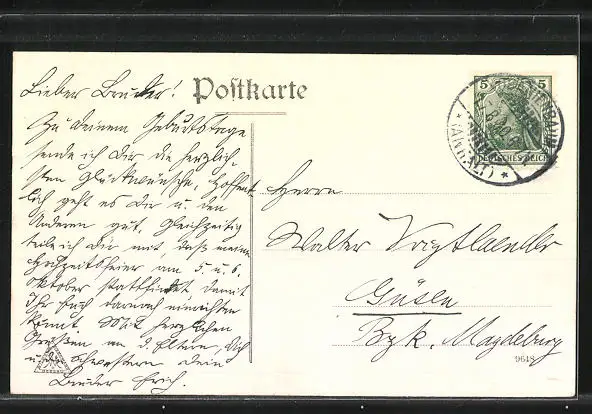 Lieber Bruder!
Postkarte
Zu Deinem Geburtstage
sende ich Dir die herzlich-
sten Glückwünsche, hoffent-
lich geht es Dir u. den
Anderen gut. Gleichzeitig
teile ich Dir mit, daß meine
Hochzeitsfeier am 5. u. 6.
Oktober stattfindet damit
Ihr Euch darnach einrichten
könnt. Mit herzlichen
Grüßen an d. Eltern, Dich
u. Schwestern Dein
Bruder Erich.
5 5
DEUTSCHES REICH
(ANHALT)
Herrn
Walter Voigtlaender
Güsen
Bzk. Magdeburg
9648